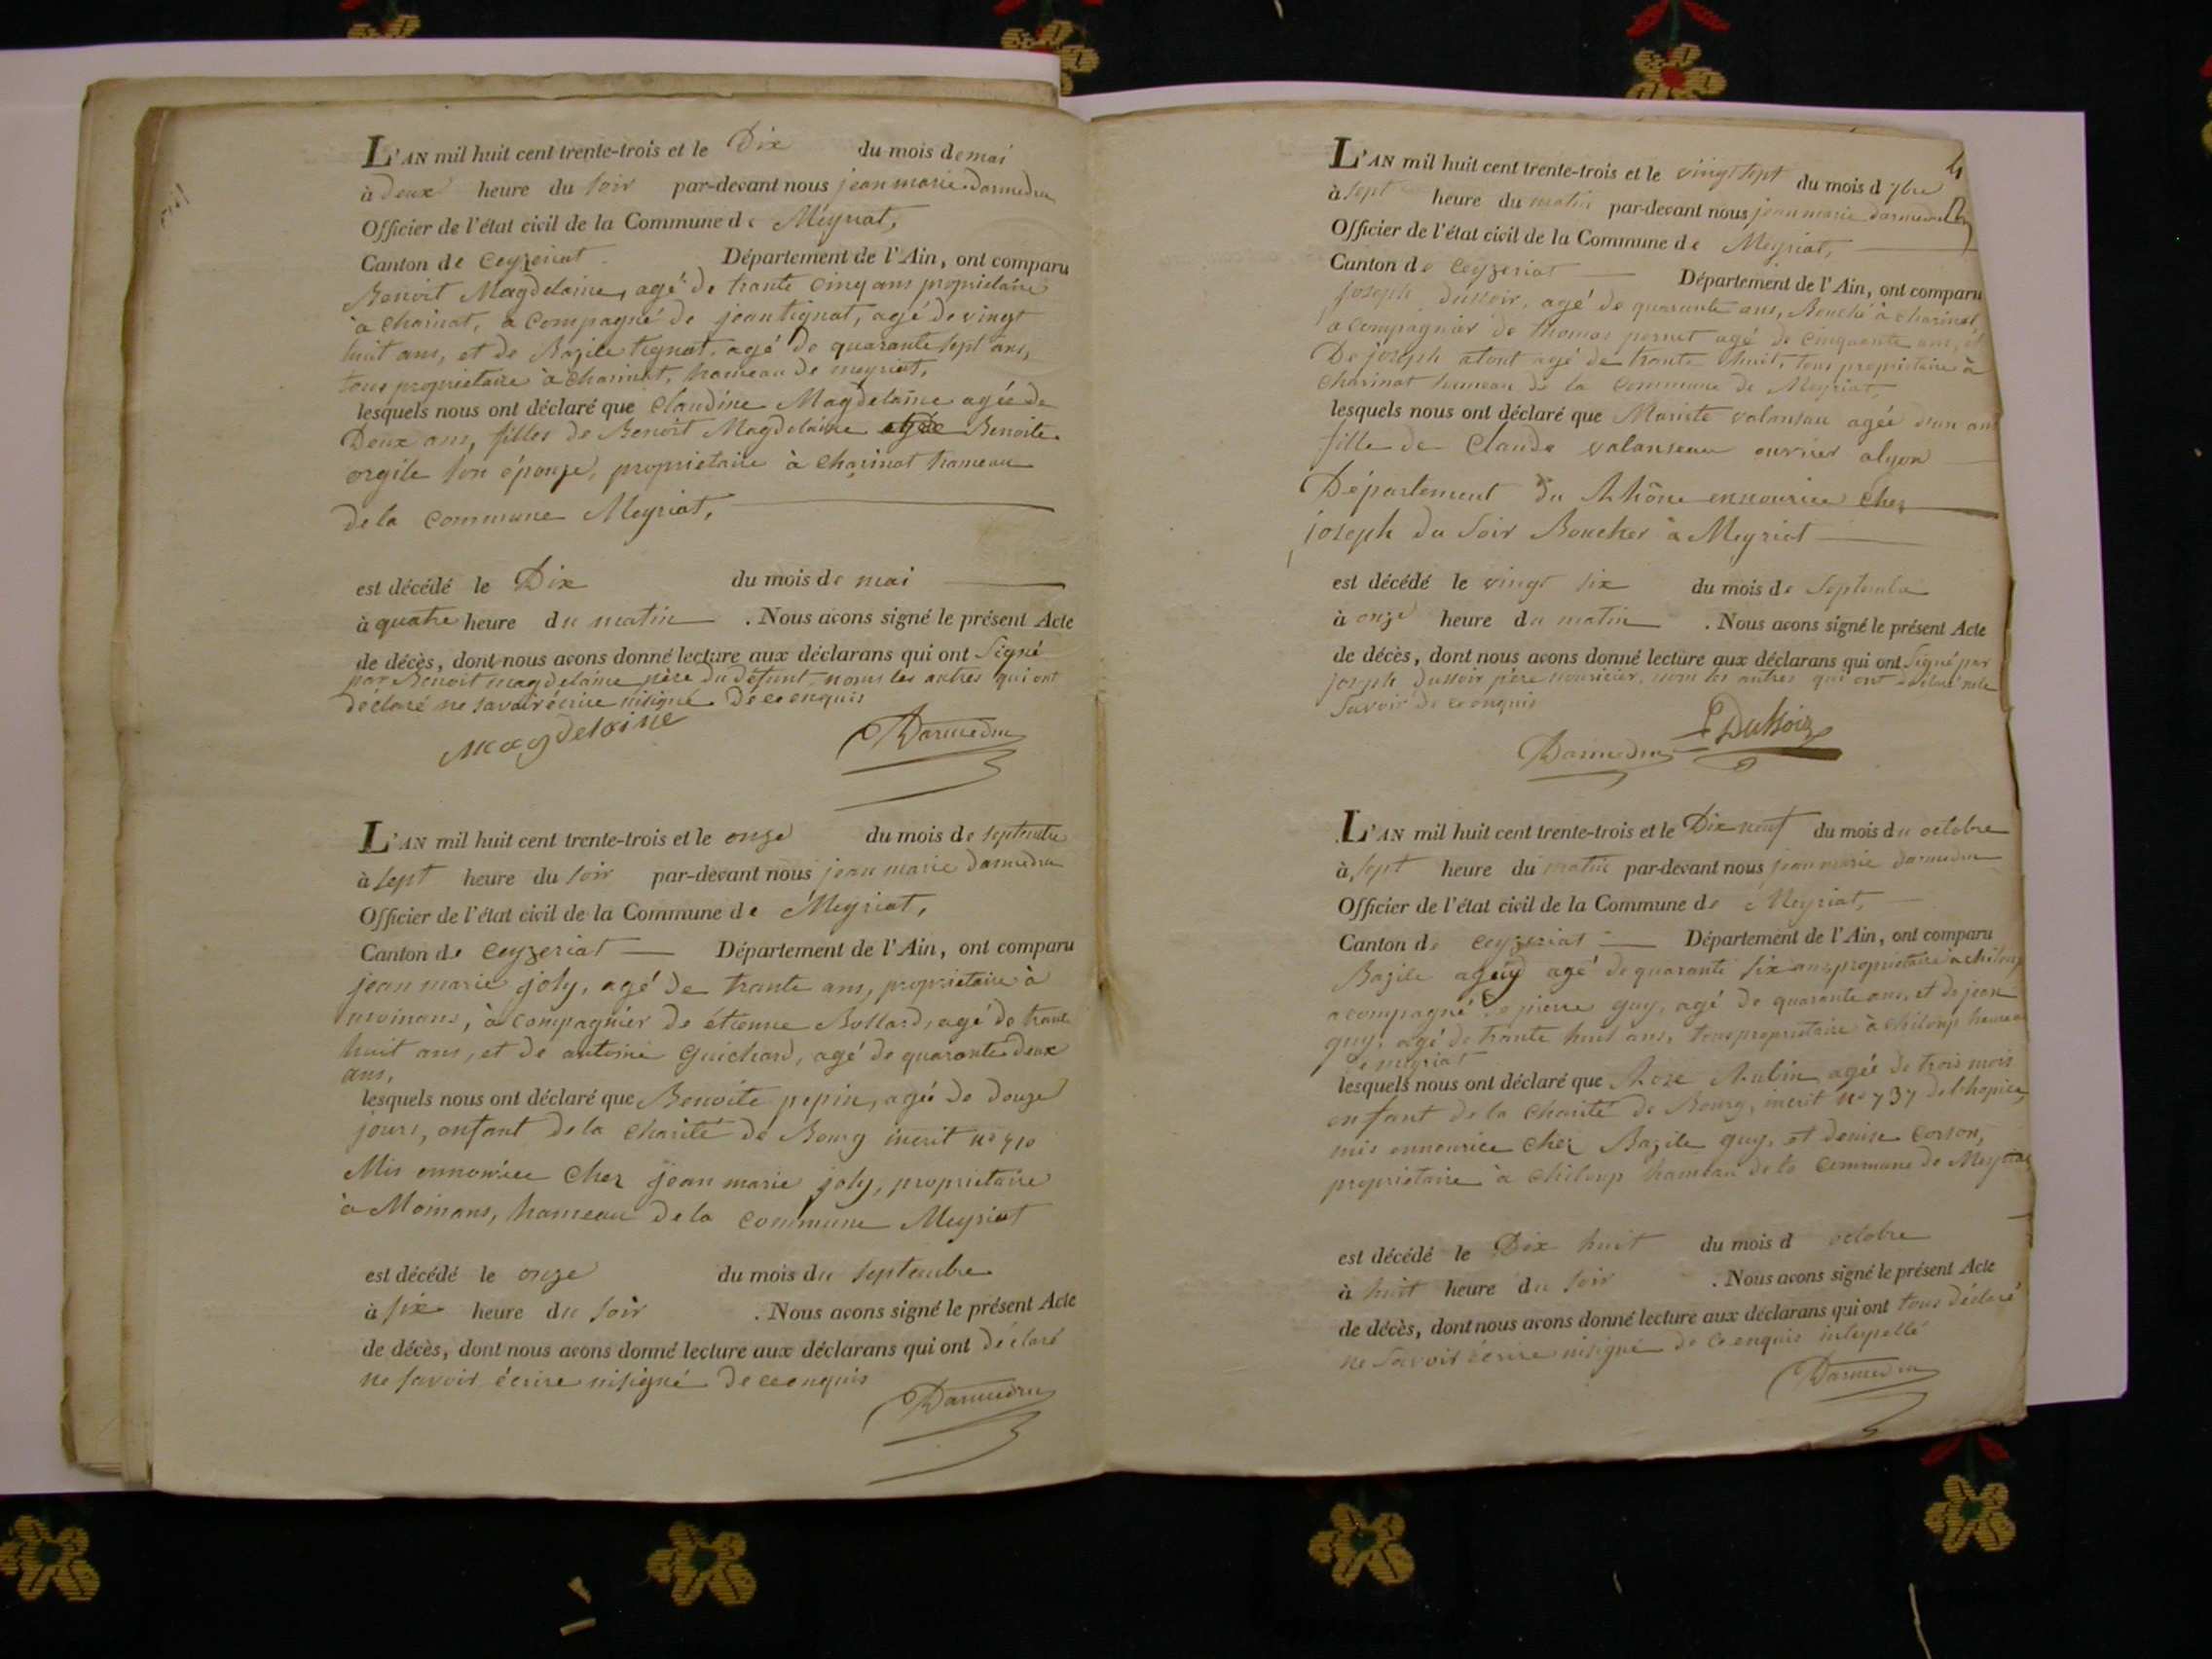 L'AN mil huit cent trente-trois et le Dix du mois de mai
à deux heure du soir par-devant nous jean marie darmedru
Officier de l'état civil de la Commune de Meyriat,
Canton de Ceyzeriat Département de l'Ain, ont comparu
Benoit Magdelaine, agé de trante cinq ans propriétaire
à charinat, a compagné de jean tignat, agé de vingt
huit ans, et de Bazile tignat, agé de quarante sept ans,
tous propriétaire à charinat, hameau de meyriat,
lesquels nous ont déclaré que Claudine Magdelaine agée de
Deux ans, filles de Benoit Magdelaine Benoite
orgite son épouze, propriétaire à charinat hameau
de la commune Meyriat,
est décédé le Dix du mois de mai
à quatre heure du matin . Nous avons signé le présent Acte
de décès, dont nous avons donné lecture aux déclarans qui ont Signé
par Benoit magdelaine père du défunt, nonus les autres qui ont
déclaré ne savoir écrire nisigné de ce enquis
Magdeloine Darmedru
L'AN mil huit cent trente-trois et le onze du mois de septembre
à sept heure du soir par-devant nous jean marie darmedru
Officier de l'état civil de la Commune de Meyriat,
Canton de Ceyzeriat Département de l'Ain, ont comparu
jean marie joly, agé de trante ans, propriétaire à
moinans, à compagnier de étienne Bollard, agé de trante
huit ans, et de antoine Guichard, agé de quarante deux
ans,
lesquels nous ont déclaré que Benoite pepin, agée de douze
jours, enfant de la charité de Bourg inscrit no 710
Mis ennourice chez jean marie joly, propriétaire
à Moinans, hameau de la commune Meyriat
est décédé le onze du mois du septembre
à six heure du soir . Nous avons signé le présent Acte
de décès, dont nous avons donné lecture aux déclarans qui ont déclaré
ne savoir écrire nisigné de ce enquis
Darmedru
4
L'AN mil huit cent trente-trois et le vingt sept du mois d 7bre
à sept heure du matin par-devant nous jean marie darmedru
Officier de l'état civil de la Commune de Meyriat,
Canton de Ceyzeriat Département de l'Ain, ont comparu
joseph dussoir, agé de quarante ans, Bouché à charinat,
a compagnier de thomas pernet agé de cinquante ans, et
De joseph atont agé de trante huit, tous propriétaire à
charinat hameau de la commune de Meyriat,
lesquels nous ont déclaré que Mariete valansau agée d'un ans
fille de Claude valanseau ouvrier alyon
Département du Rhône ennourice chez
joseph du Soir Boucher à Meyriat
est décédé le vingt six du mois de Septembre
à onze heure du matin . Nous avons signé le présent Acte
de décès, dont nous avons donné lecture aux déclarans qui ont Signé par
joseph dussoir père nouricier, non les autres qui ont déclaré ne
Savoir de ce enquis
Darmedru Dussoir
L'AN mil huit cent trente-trois et le Dix neuf du mois du octobre
à sept heure du matin par-devant nous jean marie darmedru
Officier de l'état civil de la Commune de Meyriat,
Canton de Ceyzeriat Département de l'Ain, ont comparu
Bazile aguy agé de quarante six ans, propriétaire à chiloup
acompagné de pierre guy, agé de quarante ans, et de jean
guy, agé de trante huit ans, tous propriétaire à chiloup hameau
de meyriat
lesquels nous ont déclaré que Roze Rubin, agée de trois mois
enfant de la charité de Bourg, inscrit no 737 de l'hopice,
mis ennourice chez Bazile guy, et denise Corson,
propriétaire à chiloup hameau de la commune de Meyriat
est décédé le Dix huit du mois d octobre
à huit heure du soir . Nous avons signé le présent Acte
de décès, dont nous avons donné lecture aux déclarans qui ont tous déclaré
ne Savoir écrire nisigné de ce enquis interpellé
Darmedru